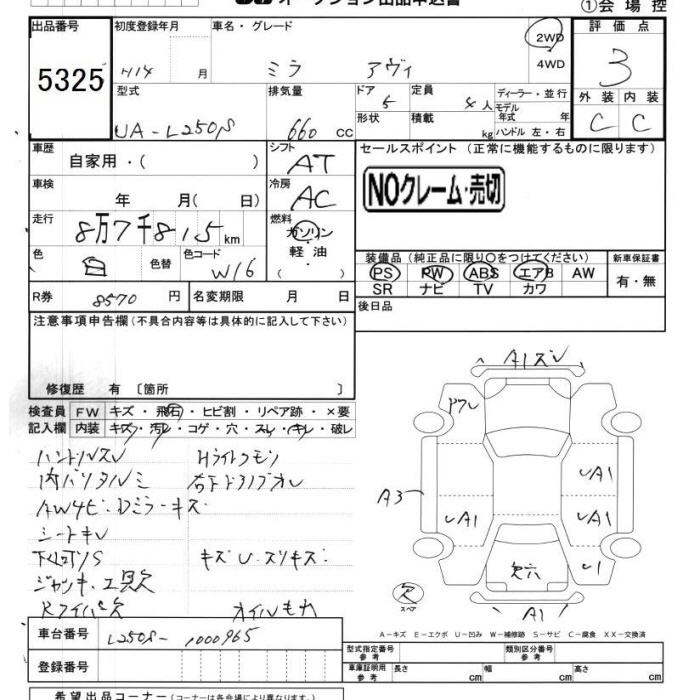 オークション出品申込書
①会場控
出品番号 初度登録年月 車名・グレード 2WD 評価点
5325 H14 月 ミラ アヴィ 4WD 3
型式 排気量 ドア 定員 ディーラー・並行 外装 内装
UA-L250S 660 cc 5 4人 モデル年式 年 C C
形状 積載 kg ハンドル 左・右
車歴 シフト セールスポイント (正常に機能するものに限ります)
自家用・( ) AT
車検 冷房 NOクレーム・売切
年 月( 日) AC
走行 燃料
8万7千815km ガソリン
軽油
( )
色 白 色替 色コード W16
装備品(純正品に限り○をつけてください) 新車保証書
PS PW ABS エアB AW 有・無
SR ナビ TV カワ
R券 8570 円 名変期限 月 日 後日品
注意事項申告欄(不具合内容等は具体的に記入して下さい)
修復歴 有 〔箇所 〕
検査員 FW キズ・飛石・ヒビ割・リペア跡・×要
記入欄 内装 キズ・汚レ・コゲ・穴・スレ・キレ・破レ
ハンドルスレ Hライトクモリ
AW4ビ・Dミラーキズ
キズU・スリキズ
ジャッキ・工具欠
Rワイパー欠 オイルもれ
A1ズレ
A3
UA1
UA1
UA1
U1
欠穴
欠
スペア
A1
A-キズ E-エクボ U-凹み W-補修跡 S-サビ C-腐食 XX-交換済
車台番号 L250S-1000965
登録番号
型式指定番号 参考 類別区分番号 参考
車庫証明用 参考 長さ cm 幅 cm 高さ cm
希望出品コーナー(コーナーは各会場により異なります)